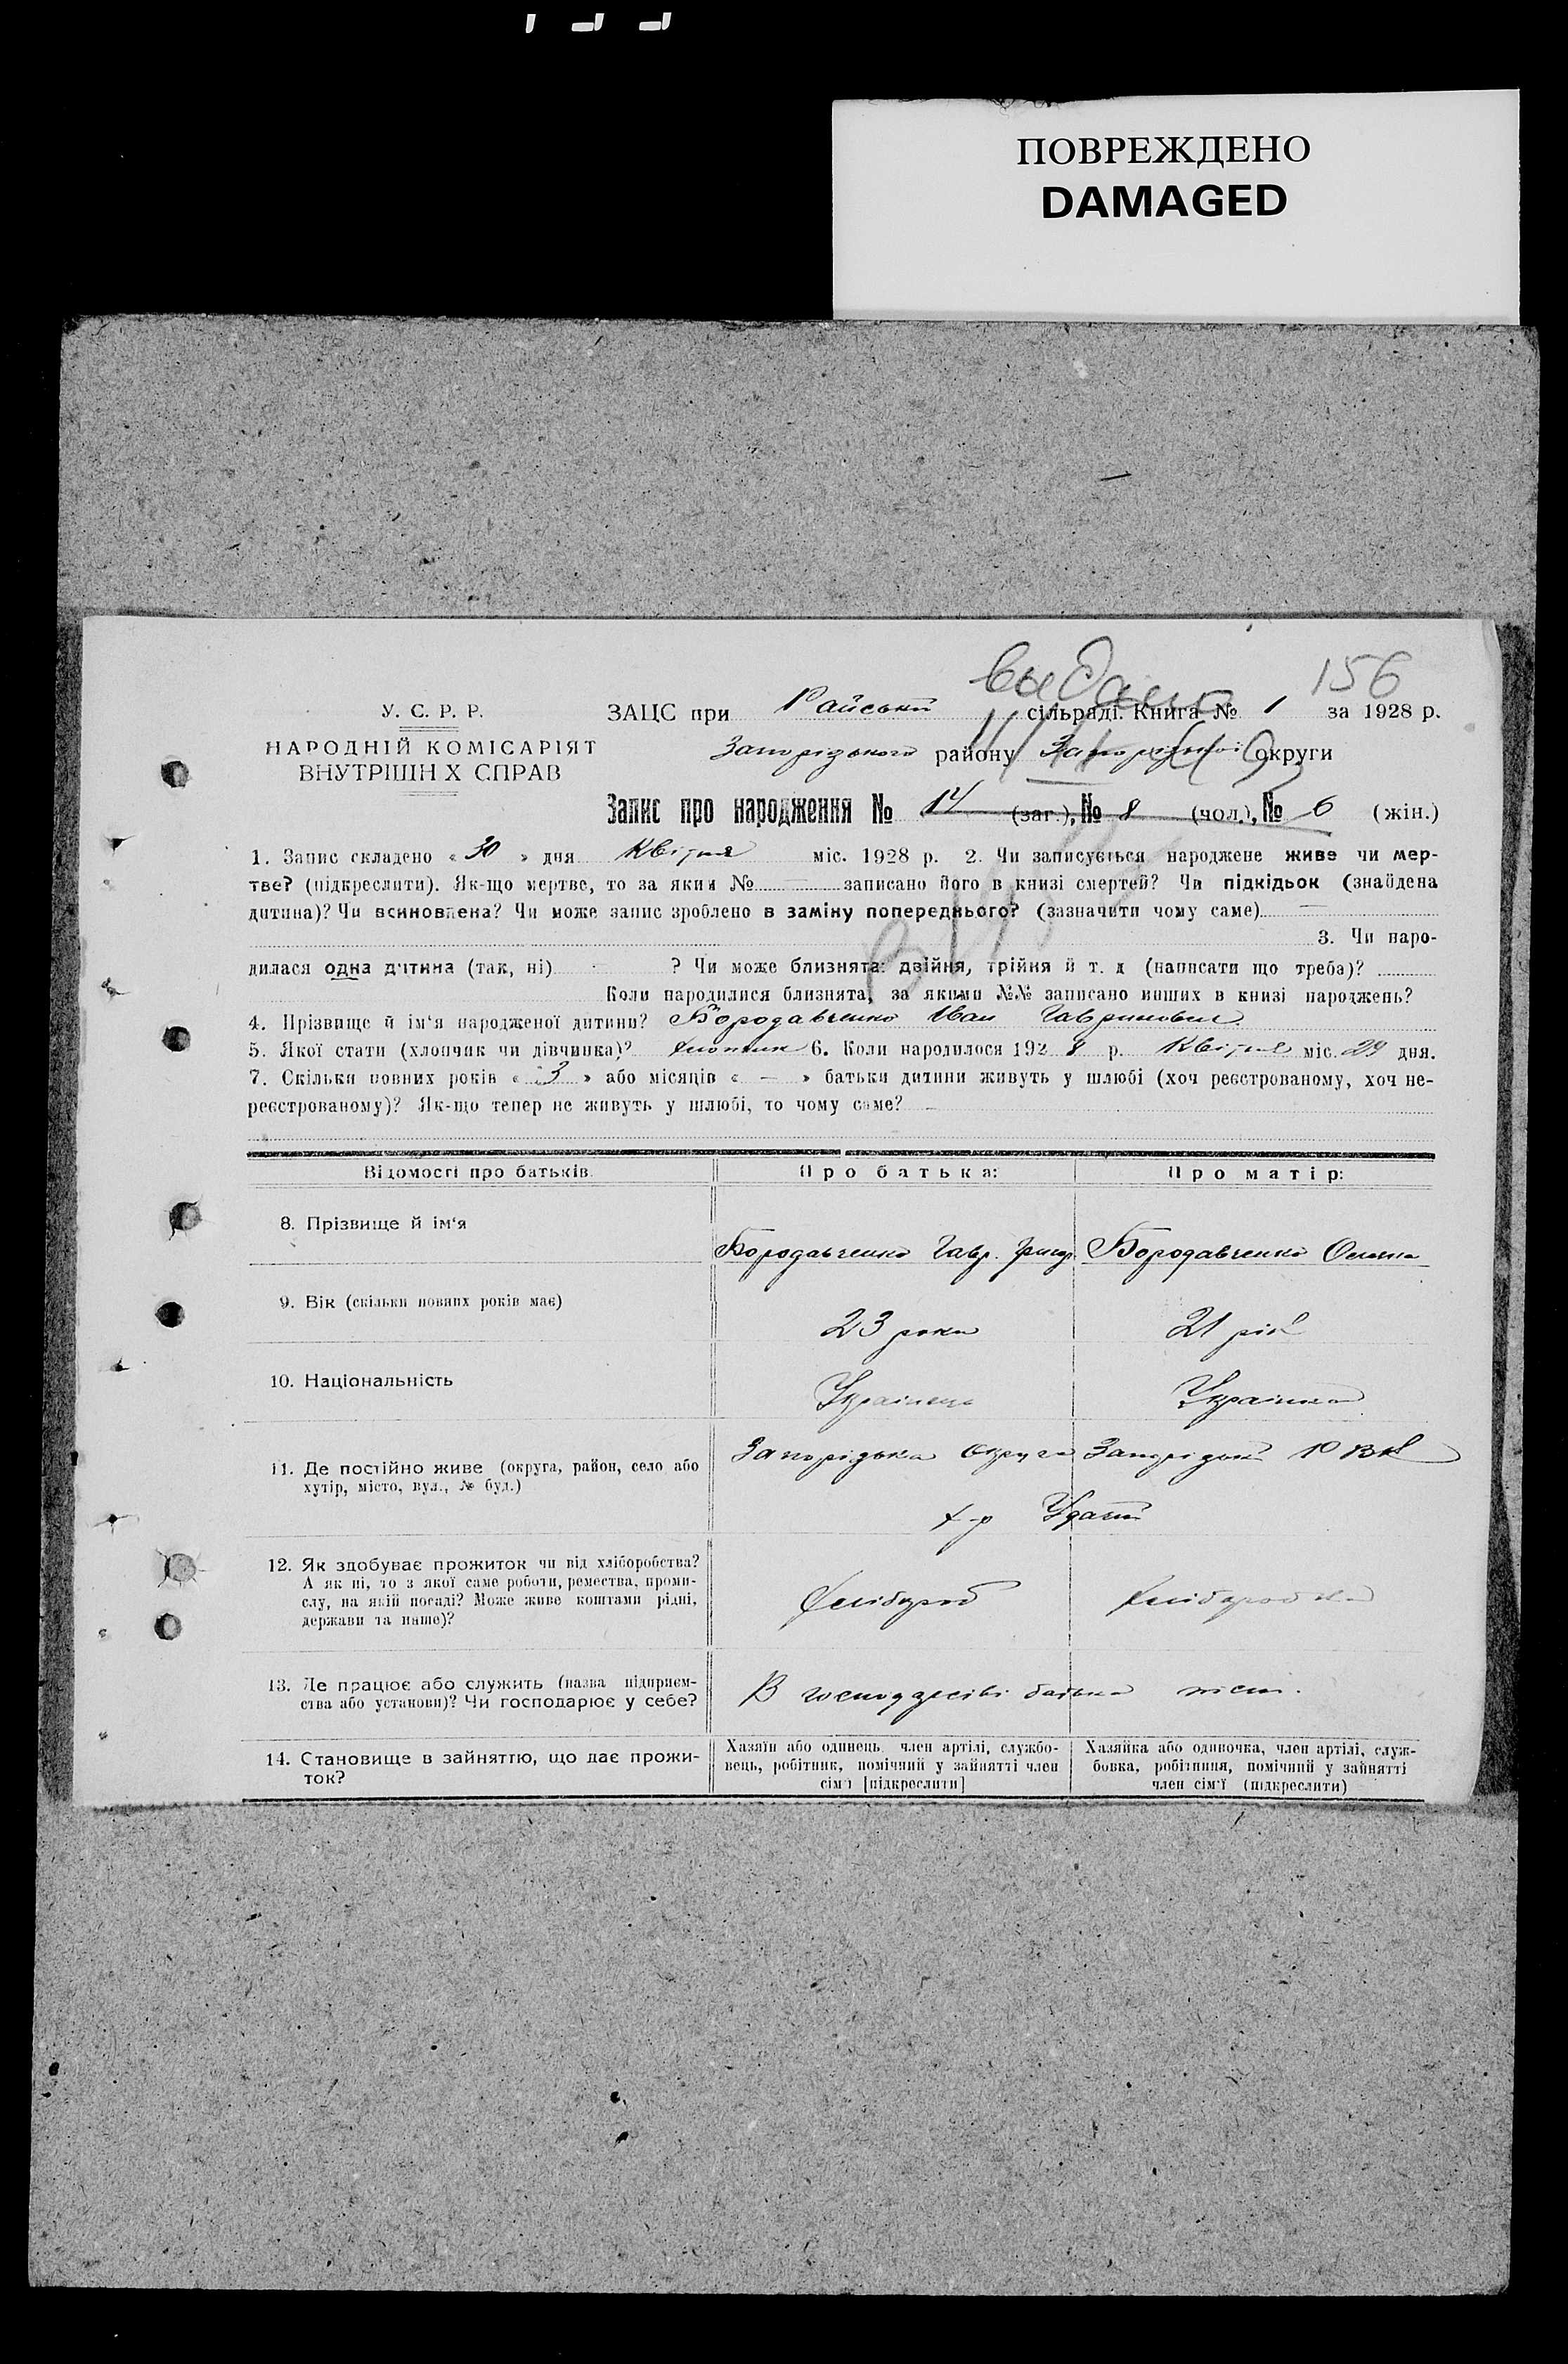 ПОВРЕЖДЕНО
DAMAGED
156
Выдано
У. С. Р. Р.
НАРОДНІЙ КОМІСАРІЯТ
ВНУТРІШН Х СПРАВ
ЗАЦС при Райській сільраді. Книга № 1 за 1928 р.
Запорізького району Запорізької округи
Запис про народження № 14 (заг.), № 8 (чол.), № 6 (жін.)
1. Запис складено « 30 » дня Квітня міс. 1928 р. 2. Чи записується народжене живе чи мер-
тве? (підкреслити). Як-що мертве, то за яким № — записано його в книзі смертей? Чи підкідьок (знайдена
дитина)? Чи всиновлена? Чи може запис зроблено в заміну попереднього? (зазначити чому саме) —
3. Чи наро-
дилася одна дитина (так, ні) — ? Чи може близнята: двійня, трійня й т. д (написати що треба)?
Коли народилися близнята, за якими №№ записано инших в книзі народжень?
4. Прізвище й ім‘я народженої дитини? Бородавченко Иван Гаврилович.
5. Якої стати (хлопчик чи дівчинка)? хлопчик 6. Коли народилося 192 8 р. Квітня міс. 29 дня.
7. Скільки повних років « 3 » або місяців « — » батьки дитини живуть у шлюбі (хоч реєстрованому, хоч не-
реєстрованому)? Як-що тепер не живуть у шлюбі, то чому саме? —
Відомості про батьків.
Про батька:
Про матір:
8. Прізвище й ім‘я
Бородавченко Гавр. Григ.
Бородавченко Олена
9. Вік (скільки повних років має)
23 роки
21 рік
10. Національність
Українець
Українка
11. Де постійно живе (округа, район, село або
хутір, місто, вул., № буд.)
Запорізька округа Запорізький
х-р
12. Як здобуває прожиток чи від хліборобства?
А як ні, то з якої саме роботи, ремества, проми-
слу, на якій посаді? Може живе коштами рідні,
держави та инше)?
Хлібороб
Хліборобка
13. Де працює або служить (назва підприєм-
ства або установи)? Чи господарює у себе?
В господарстві батька
14. Становище в зайняттю, що дає прожи-
ток?
Хазяїн або одинець, член артілі, службо-
вець, робітник, помічний у зайнятті член
сім‘ї [підкреслити]
Хазяйка або одиночка, член артілі, служ-
бовка, робітниця, помічний у зайнятті
член сім‘ї (підкреслити)